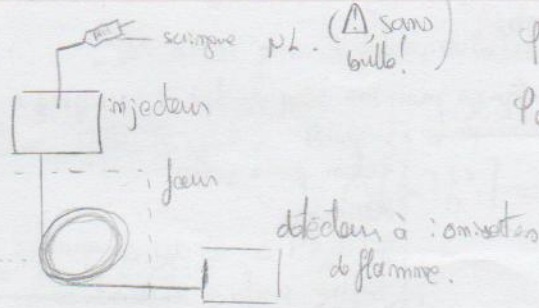 seringue μL. (⚠, sans
bulle!)
injecteur
four
détecteur à ionisation
de flamme.